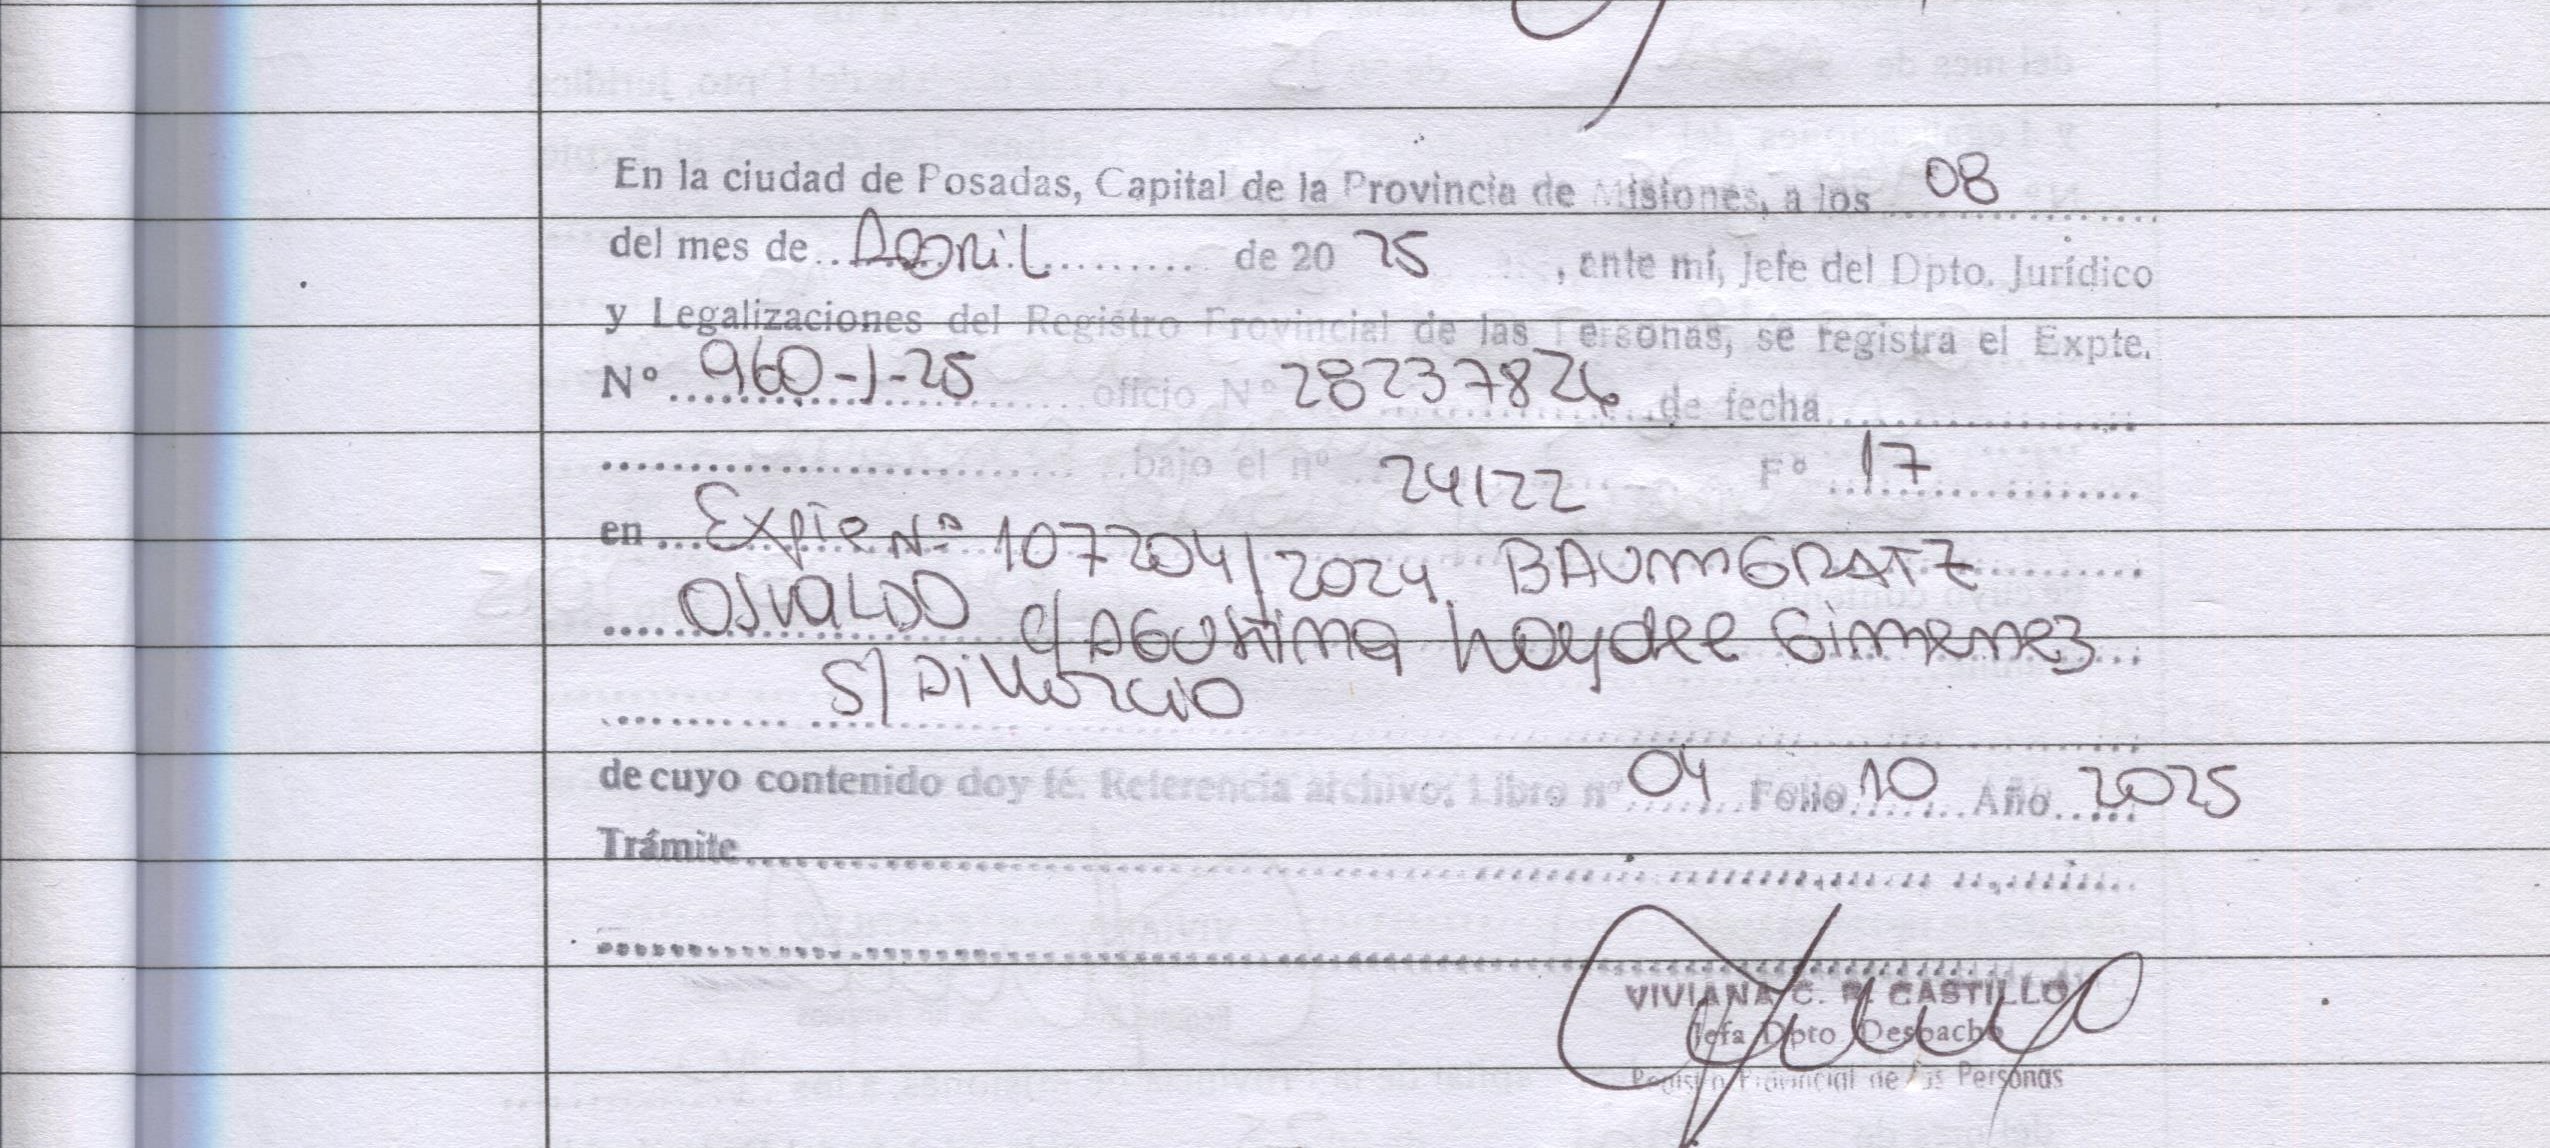 En la ciudad de Posadas, Capital de la Provincia de Misiones, a los 08
del mes de Abril de 2025, ante mí, Jefe del Dpto. Jurídico
y Legalizaciones del Registro Provincial de las Personas, se registra el Expte.
Nº 960-J-25 oficio Nº 28237826 de fecha
bajo el nº 24122 Fº 17
en Expte Nº 107204/2024 BAUMGRATZ
OSVALDO c/ AGUSTina haydee Gimenez
S/ Divorcio
de cuyo contenido doy fé. Referencia archivo: Libro nº 04 Folio 10 Año 2025
Trámite
VIVIANA C. R. CASTILLO
Jefa Dpto Despacho
Registro Provincial de las Personas